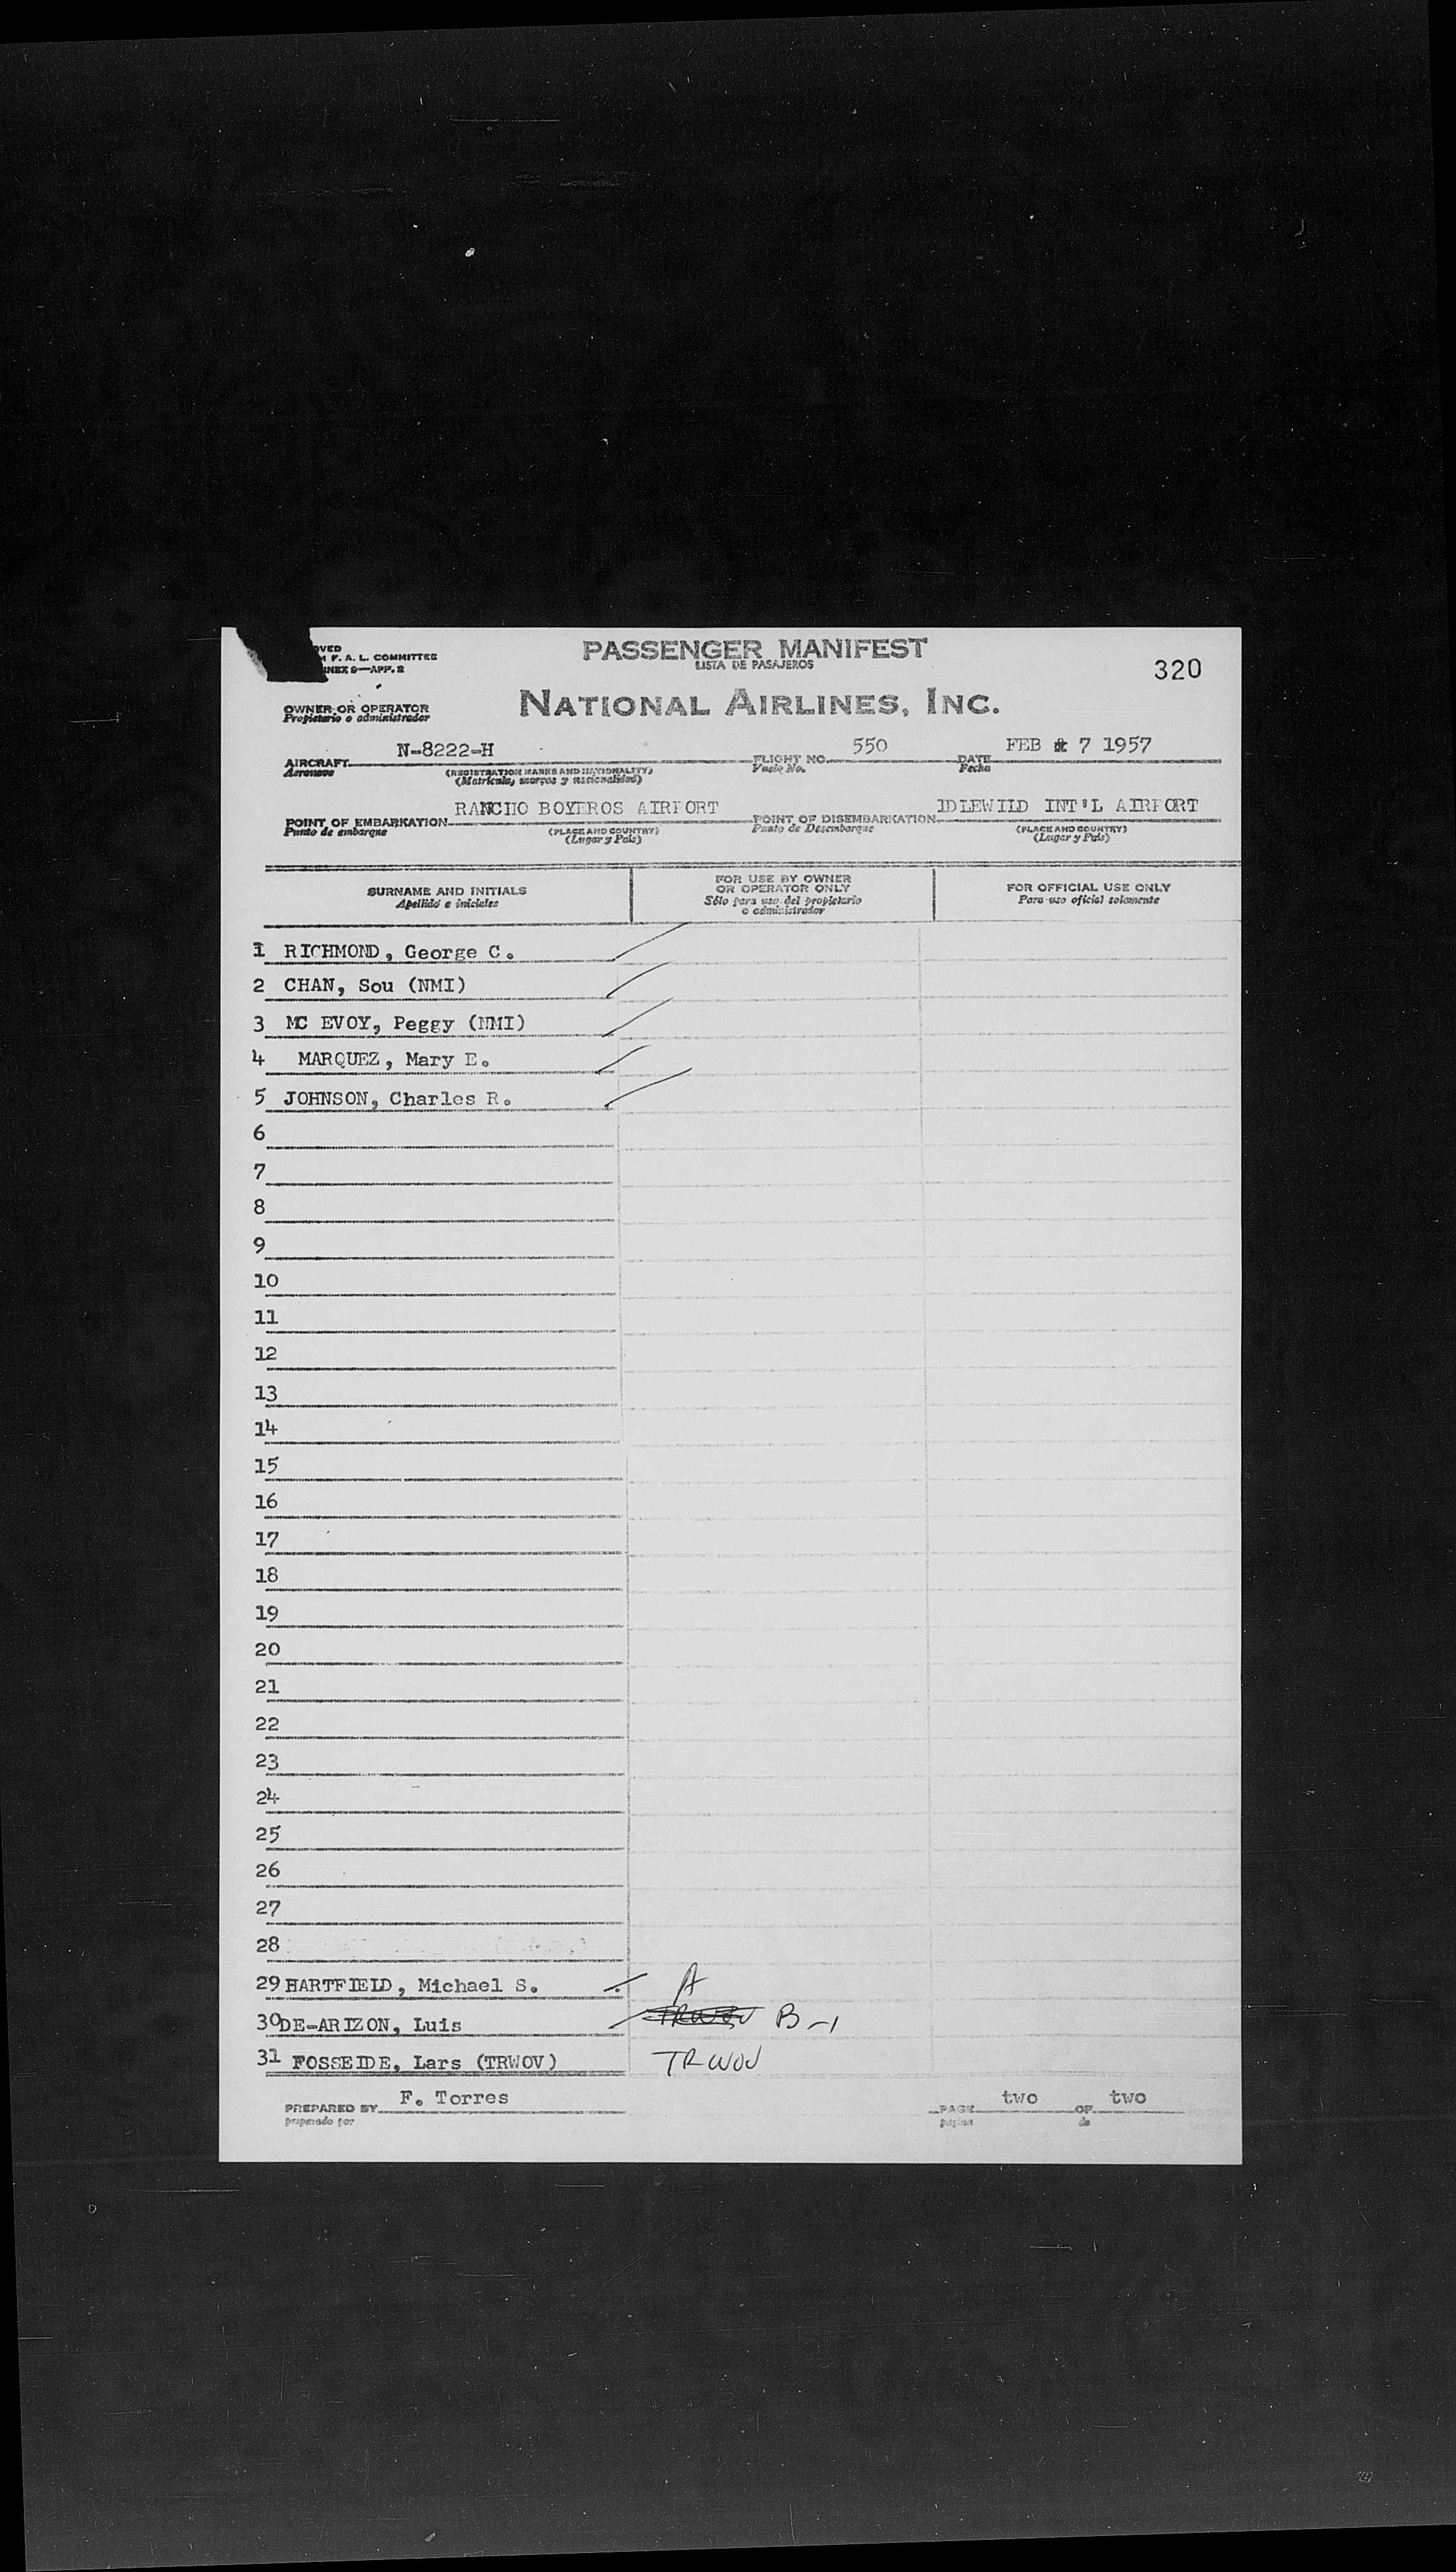 PASSENGER MANIFEST
LISTA DE PASAJEROS
F. A. L. COMMITTEE
9—APP. 2
320
OWNER OR OPERATOR
Propietario o administrador
NATIONAL AIRLINES, INC.
AIRCRAFT N-8222-H FLIGHT NO. 550 DATE FEB 7 1957
Aeronave (REGISTRATION MARKS AND NATIONALITY) Vuelo No. Fecha
(Matrícula, marcas y nacionalidad)
POINT OF EMBARKATION RANCHO BOYEROS AIRPORT POINT OF DISEMBARKATION IDLEWILD INT'L AIRPORT
Punto de embarque (PLACE AND COUNTRY) Punto de Desembarque (PLACE AND COUNTRY)
(Lugar y País) (Lugar y País)
SURNAME AND INITIALS
Apellido e iniciales
FOR USE BY OWNER
OR OPERATOR ONLY
Sólo para uso del propietario
o administrador
FOR OFFICIAL USE ONLY
Para uso oficial solamente
1 RICHMOND, George C.
2 CHAN, Sou (NMI)
3 MC EVOY, Peggy (NMI)
4 MARQUEZ, Mary E.
5 JOHNSON, Charles R.
6
7
8
9
10
11
12
13
14
15
16
17
18
19
20
21
22
23
24
25
26
27
28
29 HARTFIELD, Michael S. A
30 DE-ARIZON, Luis TRWOV B-1
31 FOSSEIDE, Lars (TRWOV) TRWOV
PREPARED BY F. Torres PAGE two OF two
preparado por página de